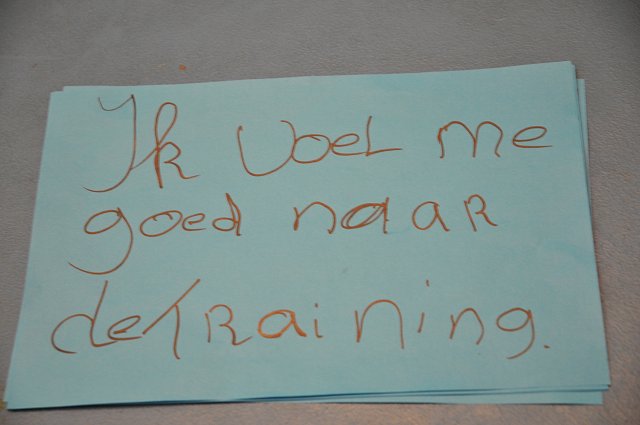 Ik voel me
goed naar
de training.